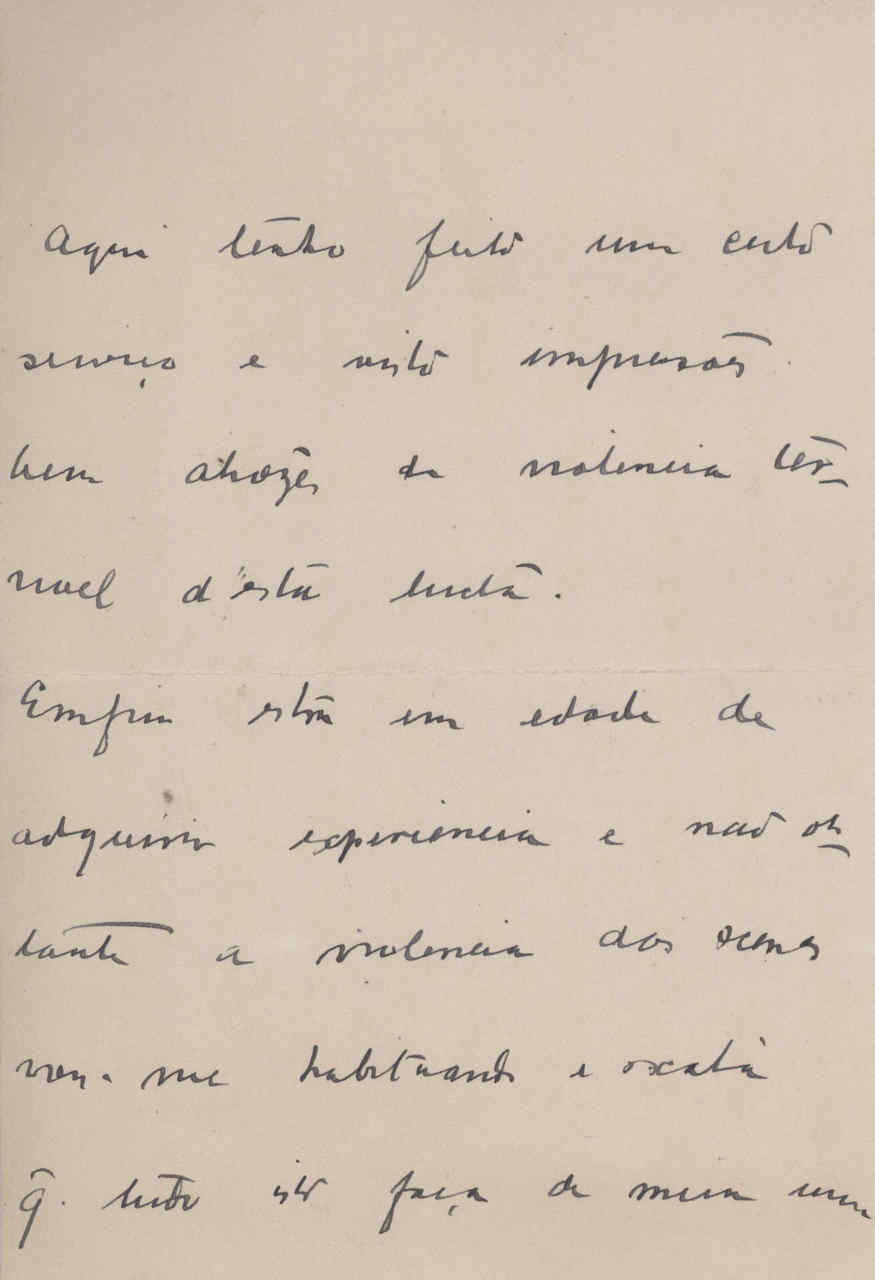 Aqui tenho feito um certo
serviço e visto impresões
bem atrozes da violencia ter-
rivel d'esta lucta.
Emfim estou em edade de
adquirir experiencia e não obs-
tante a violencia das scenas
vou-me habituando e oxalá
q. tudo isto faça de mim um